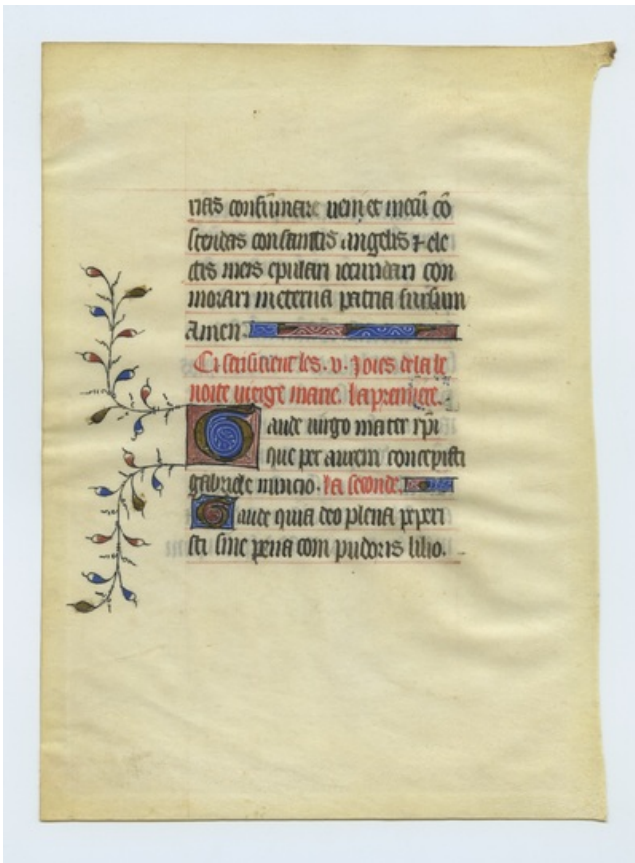 rias consumare ueni et mecū cō
scendas con sanctis angelis ⁊ ele
ctis meis epulari iocundari con
morari in eterna patria sursum
Amen.
Ci senssieuent les .v. Joies de la be
noite uierge marie. la premiere.
Gaude uirgo mater xp̄i
que per aurem concepisti
gabriele nuncio. La seconde.
Gaude quia deo plena peperi
sti sine pena com pudoris lilio.